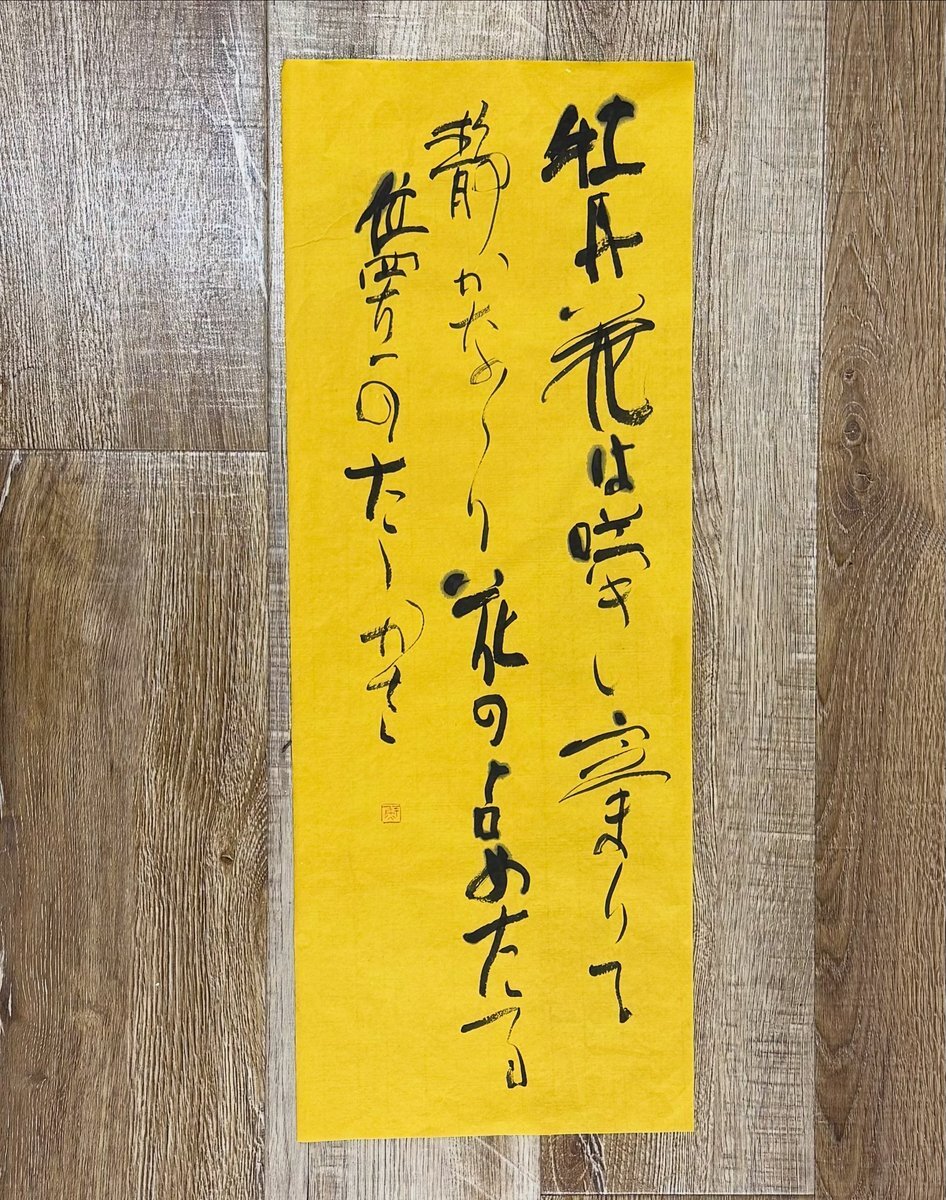 牡丹花は咲き定まりて
静かなり花の占めたる
位置のたしかさ